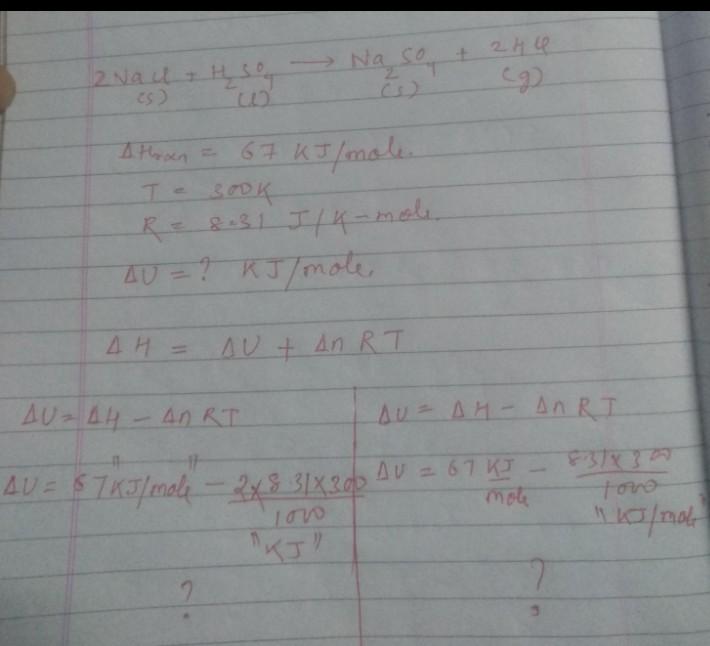 2NaCl + H2SO4 → Na2SO4 + 2HCl
(s) (l) (s) (g)
ΔHrxn = 67 KJ/mole.
T = 300K
R = 8.31 J/K-mole.
ΔU = ? KJ/mole.
ΔH = ΔU + Δn RT
ΔU = ΔH - Δn RT
ΔU = 67 "KJ/mole" - 2x8.31x300/1000
"KJ"
?
ΔU = ΔH - Δn RT
ΔU = 67 KJ/mole - 8.31x300/1000
"KJ/mole"
?